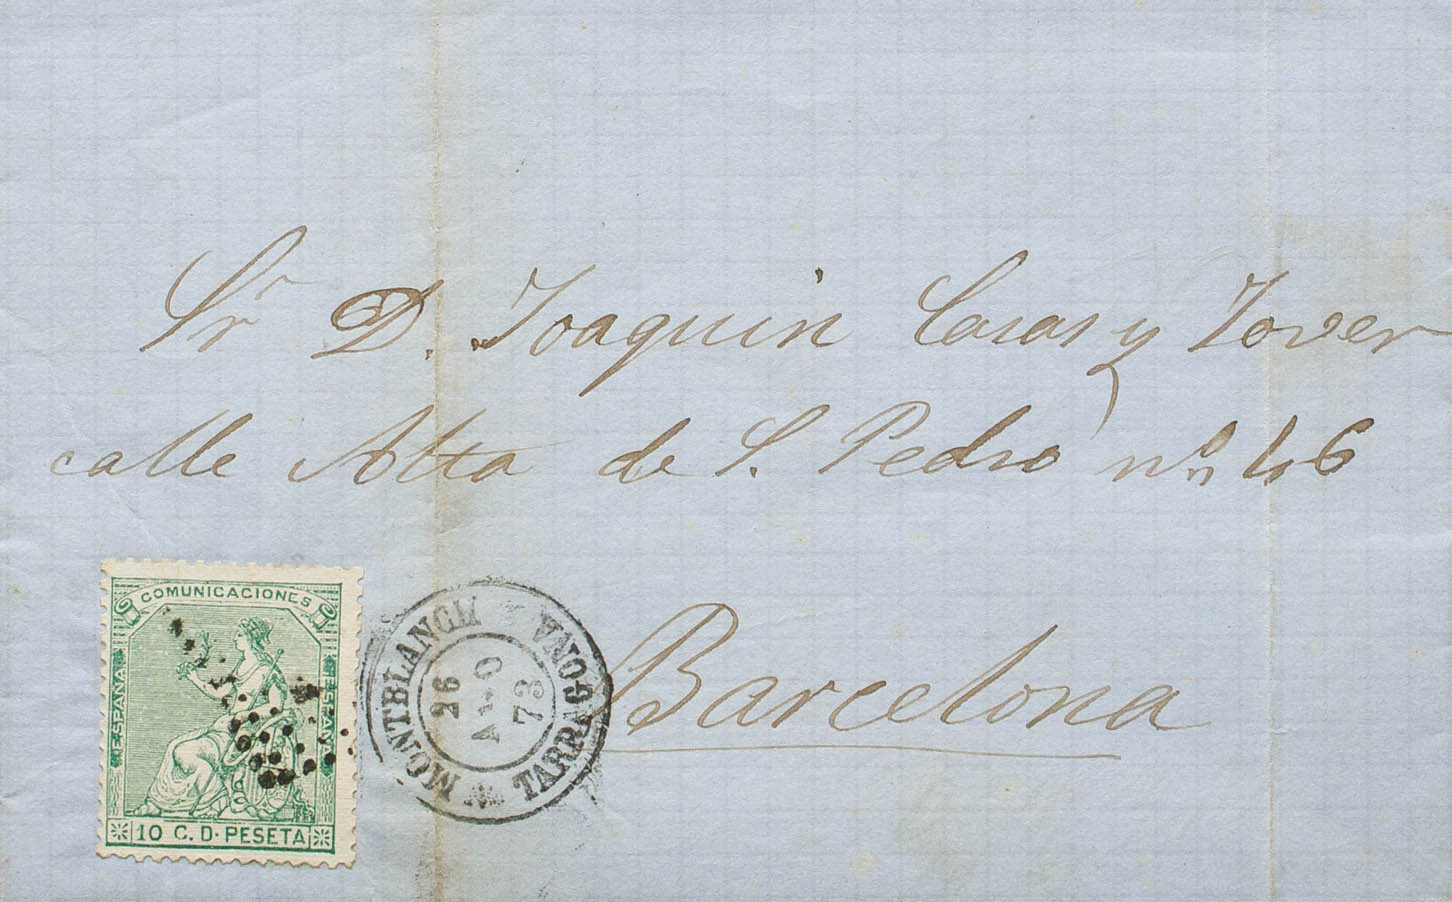 Sr D. Joaquin Casas y Tover
calle Alta de S. Pedro nº 46
Barcelona
COMUNICACIONES
ESPAÑA
ESPAÑA
10 C. D. PESETA
MONTBLANCH
TARRAGONA
26
AGO
73